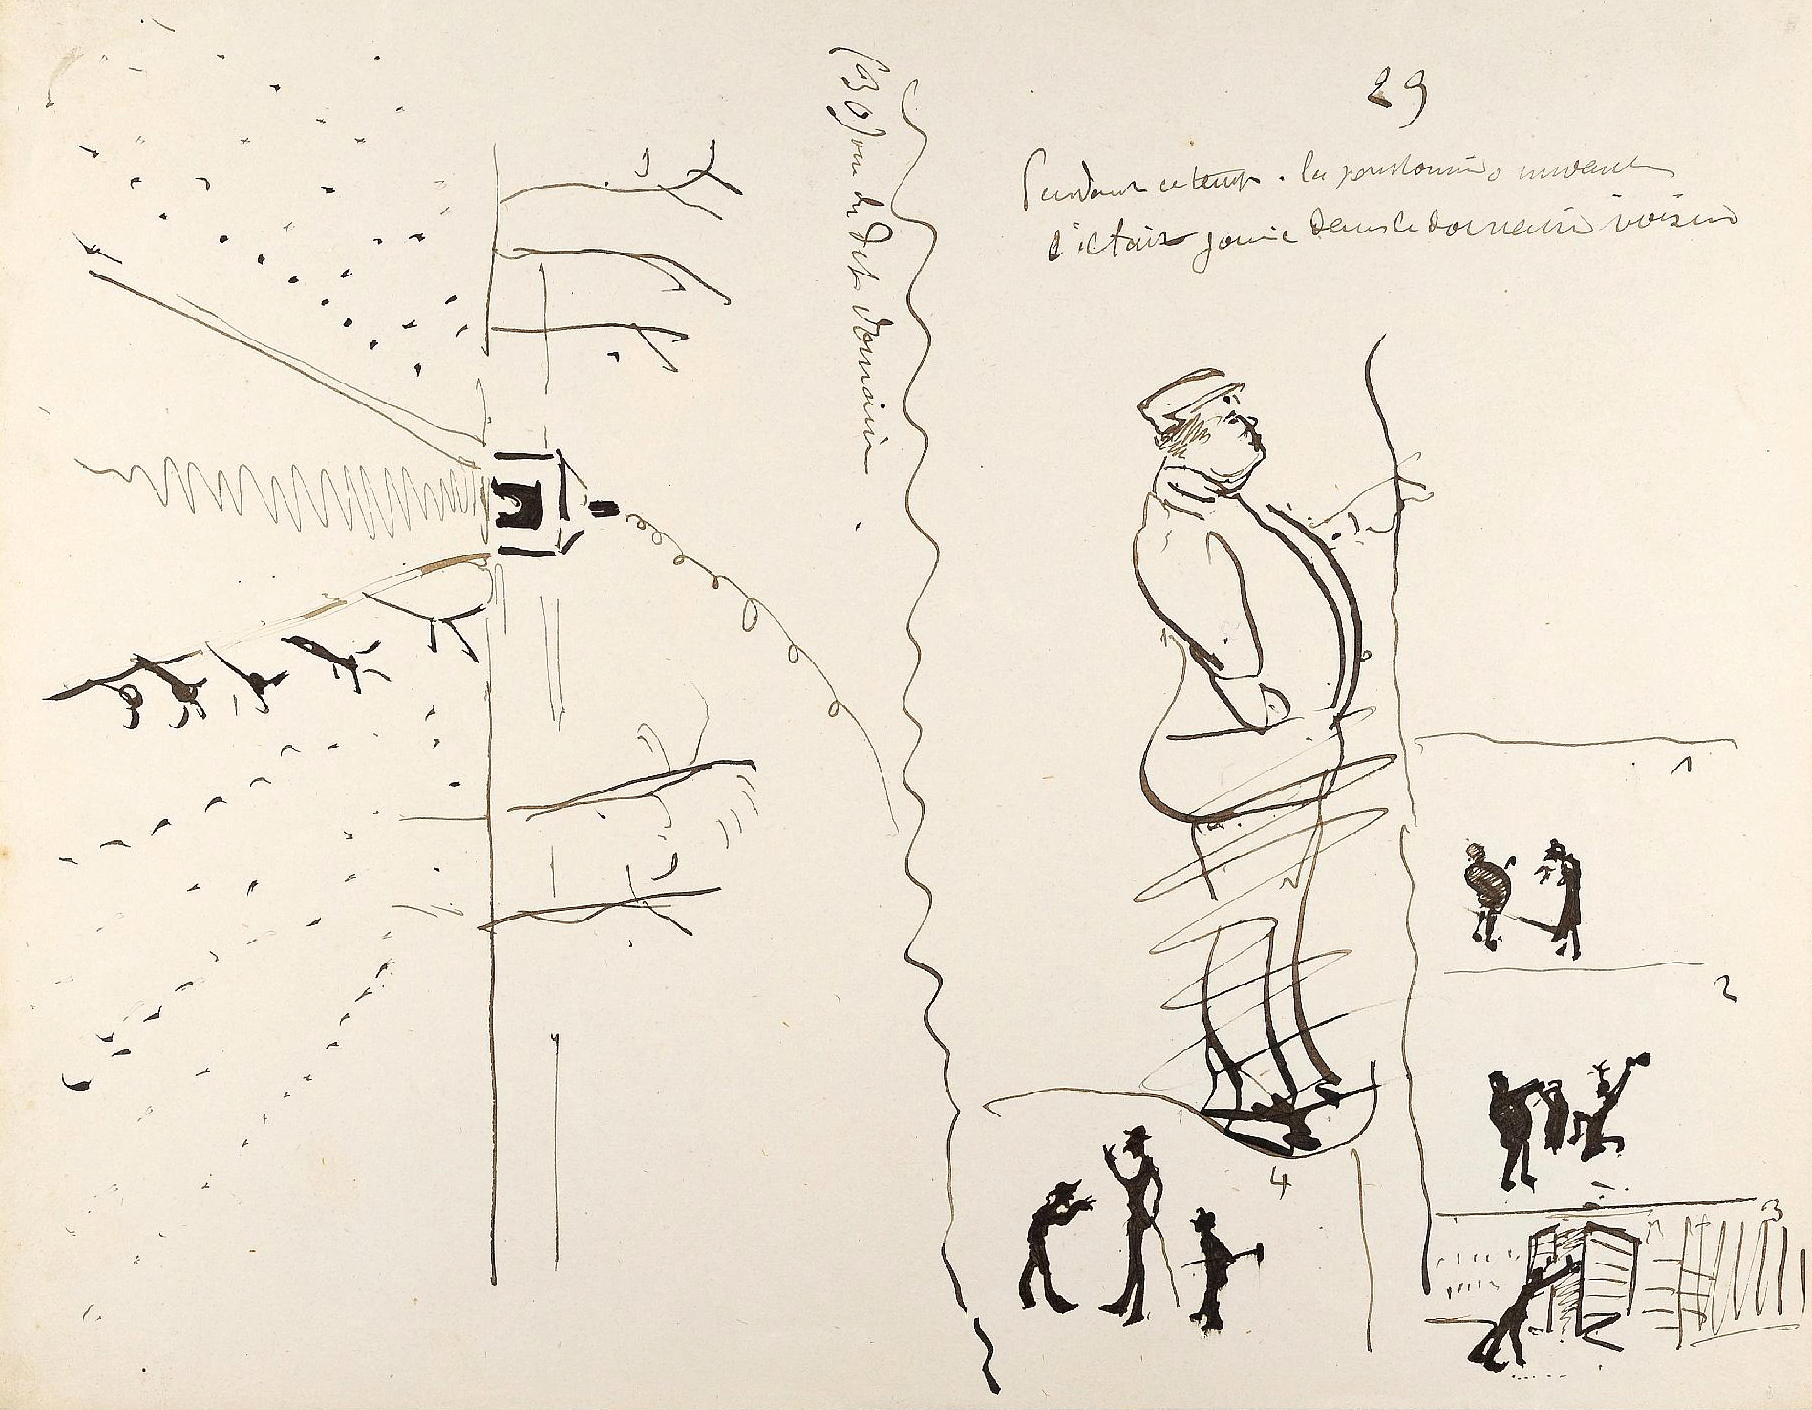 29
Pendant ce temps . la pantomime suivante
s'était jouée dans le domaine voisin
(30) vue du dit domaine .
1
2
3
4